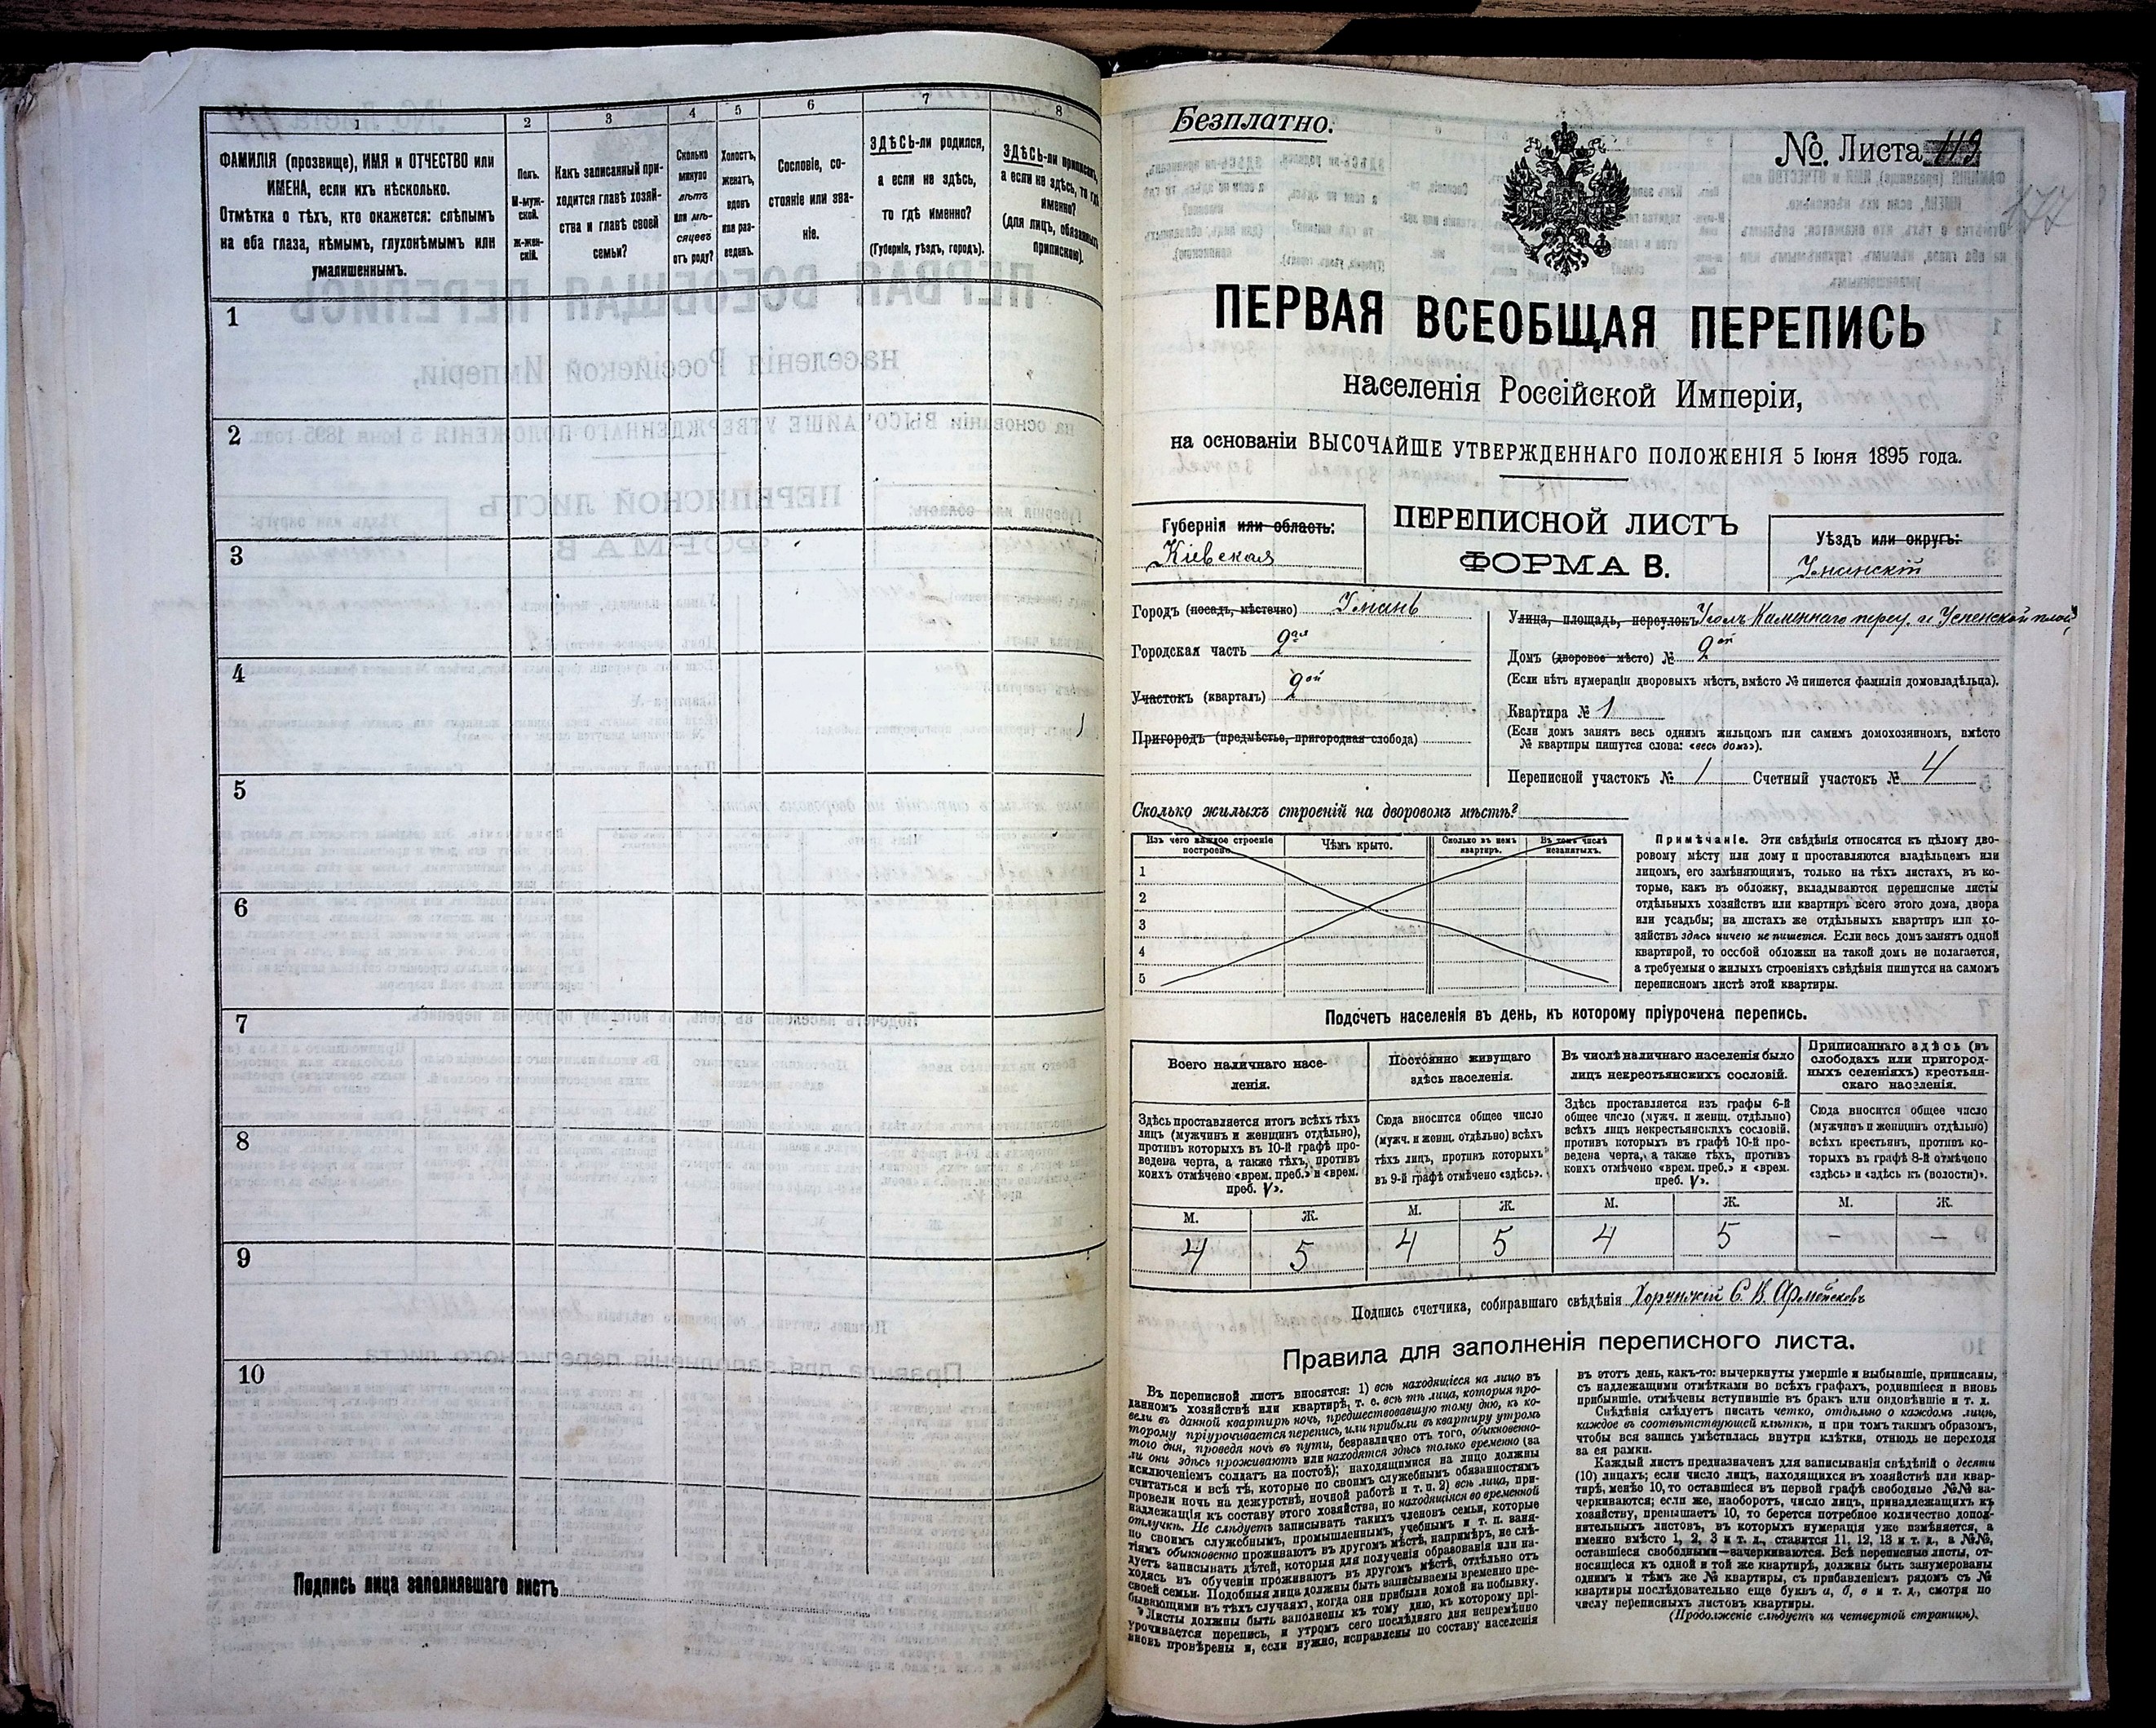 1 2 3 4 5 6 7 8
ФАМИЛІЯ (прозвище), ИМЯ и ОТЧЕСТВО или
ИМЕНА, если ихъ нѣсколько.
Отмѣтка о тѣхъ, кто окажется: слѣпымъ
на оба глаза, нѣмымъ, глухонѣмымъ или
умалишеннымъ.
Полъ.
М-муж-
ской.
Ж-жен-
скій.
Какъ записанный при-
ходится главѣ хозяй-
ства и главѣ своей
семьи?
Сколько
минуло
лѣтъ
или мѣ-
сяцевъ
отъ роду?
Холостъ,
женатъ,
вдовъ
или раз-
веденъ.
Сословіе, со-
стояніе или зва-
ніе.
ЗДѢСЬ-ли родился,
а если не здѣсь,
то гдѣ именно?
(Губернія, уѣздъ, городъ).
ЗДѢСЬ-ли приписанъ,
а если не здѣсь, то гдѣ
именно?
(для лицъ, обязанныхъ
припискою).
1
2
3
4
5
6
7
8
9
10
Подпись лица заполнявшаго листъ
Безплатно.
№ Листа 119
177
ПЕРВАЯ ВСЕОБЩАЯ ПЕРЕПИСЬ
населенія Россійской Имперіи,
на основаніи ВЫСОЧАЙШЕ УТВЕРЖДЕННАГО ПОЛОЖЕНІЯ 5 Іюня 1895 года.
Губернія или область:
Кіевская
ПЕРЕПИСНОЙ ЛИСТЪ
ФОРМА В.
Уѣздъ или округъ:
Уманскій
Городъ (посадъ, мѣстечко) Умань
Городская часть 2ая
Участокъ (кварталъ) 2ой
Пригородъ (предмѣстье, пригородная слобода)
Улица, площадь, переулокъ Уголъ Каменнаго переу. и Успенской площ.
Домъ (дворовое мѣсто) № 2ой
(Если нѣтъ нумераціи дворовыхъ мѣстъ, вмѣсто № пишется фамилія домовладѣльца).
Квартира № 1
(Если домъ занятъ весь однимъ жильцомъ или самимъ домохозяиномъ, вмѣсто
№ квартиры пишутся слова: «весь домъ»).
Переписной участокъ № 1 Счетный участокъ № 4
Сколько жилыхъ строеній на дворовомъ мѣстѣ?
Изъ чего каждое строеніе
построено.
Чѣмъ крыто.
Сколько въ немъ
квартиръ.
Въ томъ числѣ
незанятыхъ.
1
2
3
4
5
Примѣчаніе. Эти свѣдѣнія относятся къ цѣлому дво-
ровому мѣсту или дому и проставляются владѣльцемъ или
лицомъ, его замѣняющимъ, только на тѣхъ листахъ, въ ко-
торые, какъ въ обложку, вкладываются переписные листы
отдѣльныхъ хозяйствъ или квартиръ всего этого дома, двора
или усадьбы; на листахъ же отдѣльныхъ квартиръ или хо-
зяйствъ здѣсь ничего не пишется. Если весь домъ занятъ одной
квартирой, то особой обложки на такой домъ не полагается,
а требуемыя о жилыхъ строеніяхъ свѣдѣнія пишутся на самомъ
переписномъ листѣ этой квартиры.
Подсчетъ населенія въ день, къ которому пріурочена перепись.
Всего наличнаго насе-
ленія.
Постоянно живущаго
здѣсь населенія.
Въ числѣ наличнаго населенія было
лицъ некрестьянскихъ сословій.
Приписаннаго здѣсь (въ
слободахъ или пригород-
ныхъ селеніяхъ) крестьян-
скаго населенія.
Здѣсь проставляется итогъ всѣхъ тѣхъ
лицъ (мужчинъ и женщинъ отдѣльно),
противъ которыхъ въ 10-й графѣ про-
ведена черта, а также тѣхъ, противъ
коихъ отмѣчено «врем. преб.» и «врем.
преб. V».
Сюда вносится общее число
(мужч. и женщ. отдѣльно) всѣхъ
тѣхъ лицъ, противъ которыхъ
въ 9-й графѣ отмѣчено «здѣсь».
Здѣсь проставляется изъ графы 6-й
общее число (мужч. и женщ. отдѣльно)
всѣхъ лицъ некрестьянскихъ сословій,
противъ которыхъ въ графѣ 10-й про-
ведена черта, а также тѣхъ, противъ
коихъ отмѣчено «врем. преб.» и «врем.
преб. V».
Сюда вносится общее число
(мужчинъ и женщинъ отдѣльно)
всѣхъ крестьянъ, противъ ко-
торыхъ въ графѣ 8-й отмѣчено
«здѣсь» и «здѣсь къ (волости)».
М. Ж. М. Ж. М. Ж. М. Ж.
4 5 4 5 4 5 – –
Подпись счетчика, собиравшаго свѣдѣнія Хорунжій С. В.
Правила для заполненія переписного листа.
Въ переписной листъ вносятся: 1) всѣ находящіеся на лицо въ
данномъ хозяйствѣ или квартирѣ, т. е. всѣ тѣ лица, которыя про-
вели въ данной квартирѣ ночь, предшествовавшую тому дню, къ ко-
торому пріурочивается перепись, или прибыли въ квартиру утромъ
того дня, проведя ночь въ пути, безразлично отъ того, обыкновенно-
ли они здѣсь проживаютъ или находятся здѣсь только временно (за
исключеніемъ солдатъ на постоѣ); находящимися на лицо должны
считаться и всѣ тѣ, которые по своимъ служебнымъ обязанностямъ
провели ночь на дежурствѣ, ночной работѣ и т. п. 2) всѣ лица, при-
надлежащія къ составу этого хозяйства, но находящіяся во временной
отлучкѣ. Не слѣдуетъ записывать такихъ членовъ семьи, которые
по своимъ служебнымъ, промышленнымъ, учебнымъ и т. п. заня-
тіямъ обыкновенно проживаютъ въ другомъ мѣстѣ, напримѣръ, не слѣ-
дуетъ записывать дѣтей, которыя для полученія образованія или на-
ходясь въ обученіи проживаютъ въ другомъ мѣстѣ, отдѣльно отъ
своей семьи. Подобныя лица должны быть записываемы временно пре-
бывающими въ тѣхъ случаяхъ, когда они прибыли домой на побывку.
Листы должны быть заполнены къ тому дню, къ которому прі-
урочивается перепись, и утромъ сего послѣдняго дня непремѣнно
вновь провѣрены и, если нужно, исправлены по составу населенія
въ этотъ день, какъ-то: вычеркнуты умершіе и выбывшіе, приписаны,
съ надлежащими отмѣтками во всѣхъ графахъ, родившіеся и вновь
прибывшіе, отмѣчены вступившіе въ бракъ или овдовѣвшіе и т. д.
Свѣдѣнія слѣдуетъ писать четко, отдѣльно о каждомъ лицѣ,
каждое въ соотвѣтствующей клѣткѣ, и при томъ такимъ образомъ,
чтобы вся запись умѣстилась внутри клѣтки, отнюдь не переходя
за ея рамки.
Каждый листъ предназначенъ для записыванія свѣдѣній о десяти
(10) лицахъ; если число лицъ, находящихся въ хозяйствѣ или квар-
тирѣ, менѣе 10, то оставшіеся въ первой графѣ свободные №№ за-
черкиваются; если же, наоборотъ, число лицъ, принадлежащихъ къ
хозяйству, превышаетъ 10, то берется потребное количество допол-
нительныхъ листовъ, въ которыхъ нумерація уже измѣняется, а
именно вмѣсто 1, 2, 3 и т. д., ставится 11, 12, 13 и т. д., а №№,
оставшіеся свободными—зачеркиваются. Всѣ переписные листы, от-
носящіеся къ одной и той же квартирѣ, должны быть занумерованы
однимъ и тѣмъ же № квартиры, съ прибавленіемъ рядомъ съ №
квартиры послѣдовательно еще буквъ а, б, в и т. д., смотря по
числу переписныхъ листовъ квартиры.
(Продолженіе слѣдуетъ на четвертой страницѣ).